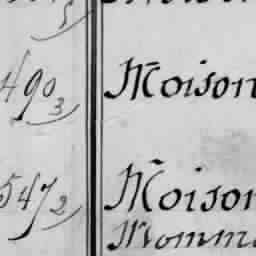 490 3 Moison
547 2 Moison
Momm